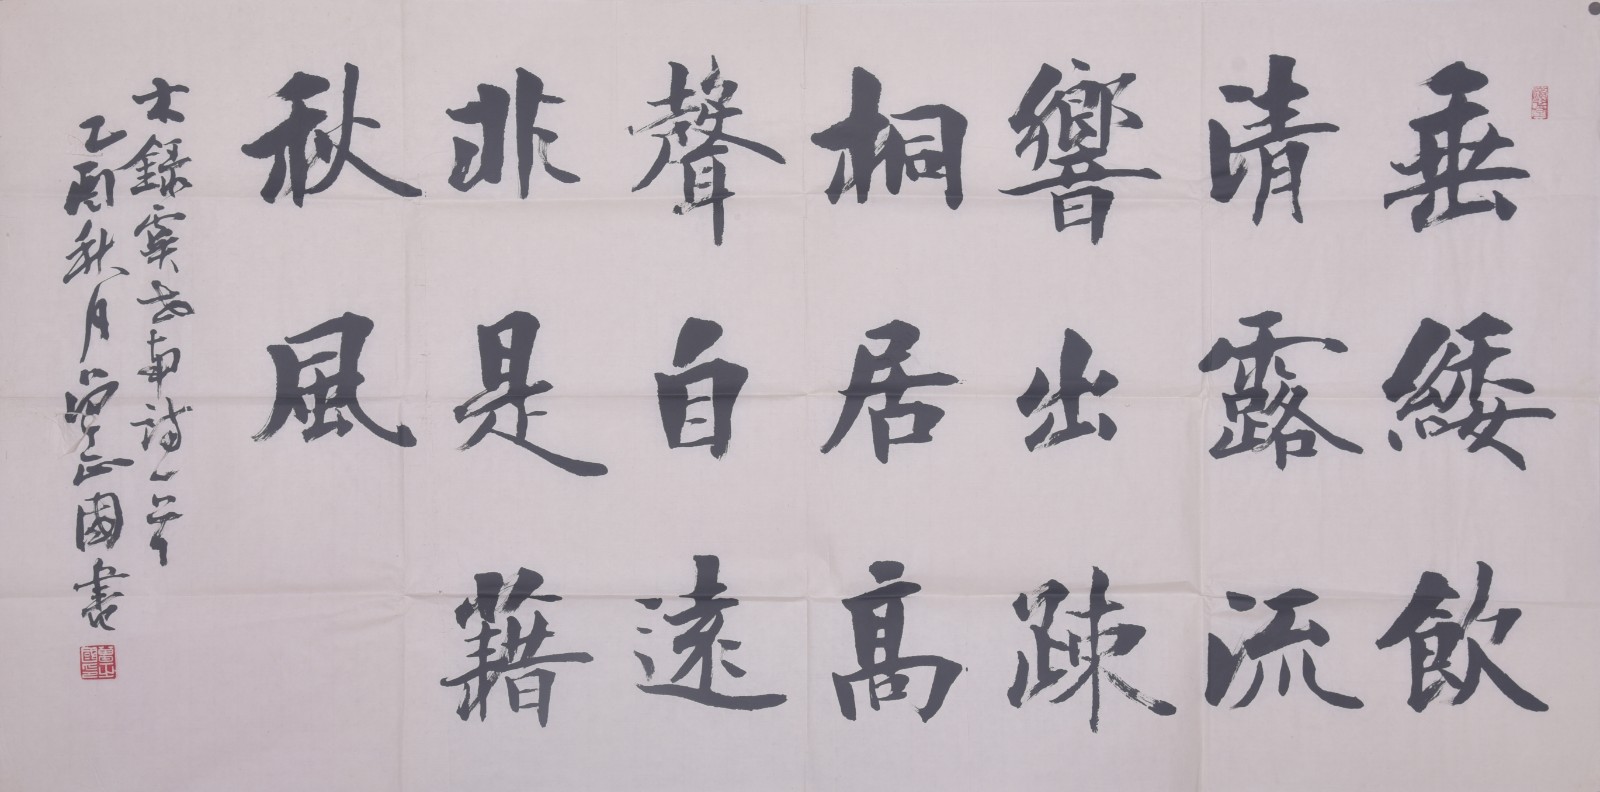 垂緌飲
清露流
響出疎
桐居高
聲自遠
非是藉
秋風
士錄虞世南詩一首
乙酉秋月
正國書